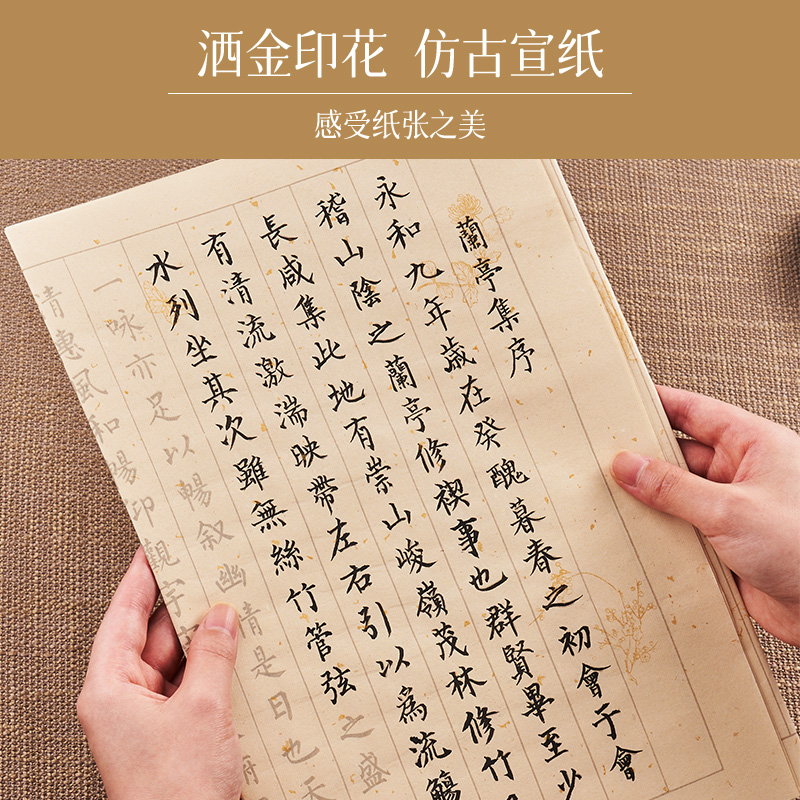 洒金印花 仿古宣纸
感受纸张之美
蘭亭集序
永和九年歲在癸醜暮春之初會于會
稽山陰之蘭亭修禊事也群賢畢至少
長咸集此地有崇山峻嶺茂林修竹
有清流激湍映帶左右引以為流觴
水列坐其次雖無絲竹管弦之盛
一咏亦足以暢叙幽情是日也天
清惠風和暢仰觀宇